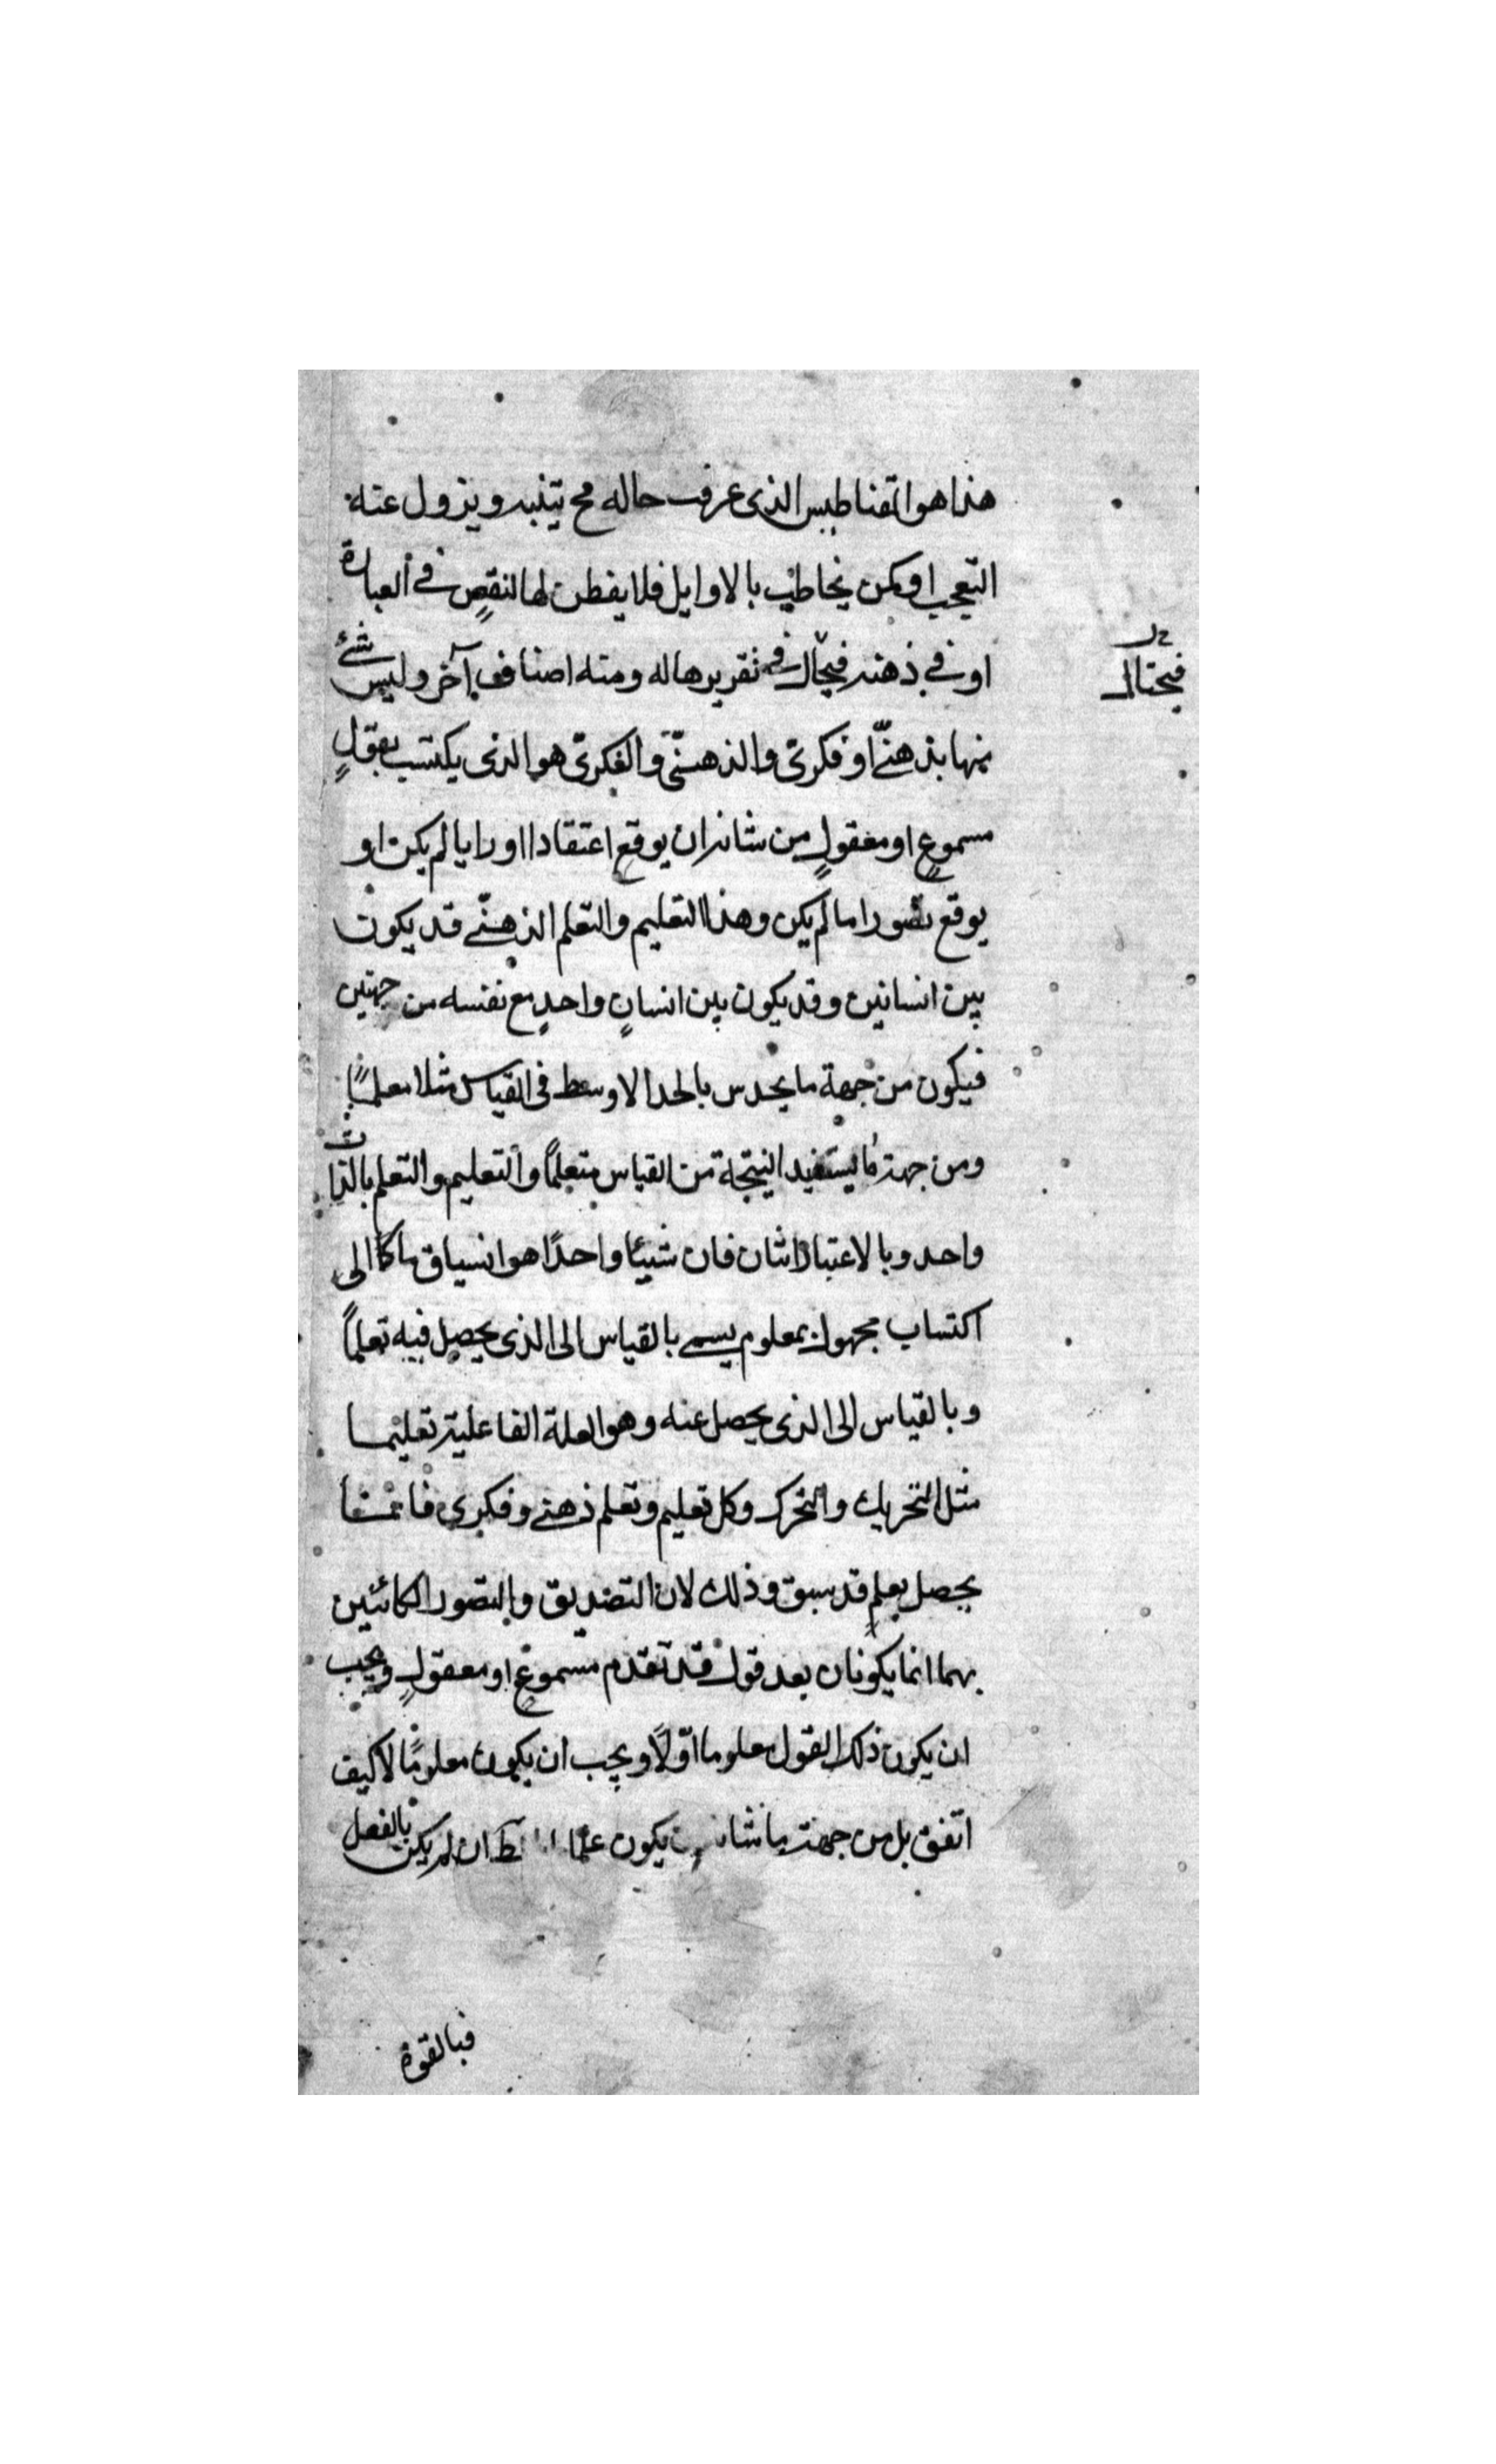 هذا هو المقناطيس الذى عرفت حاله فح يتنبه ويزول عنه
التعجب او كمن يخاطب بالاوايل فلا يفطن لها لنقص فى العبارة
او فى ذهنه فيحال فى تقريرها له ومنه اصناف آخر وليس شئ
فيحتال
منها بذهنّى او فكرى والذهنىّ والفكرىّ هو الذى يكتسب بقولٍ
مسموعٍ او معقولٍ من شانه ان يوقع اعتقادا او رايا لم يكن او
يوقع تصورا ما لم يكن وهذا التعليم والتعلم الذهنّى قد يكون
بين انسانين وقد يكون بين انسانٍ واحدٍ مع نفسه من جهتين
فيكون من جهة ما يحدس بالحد الاوسط فى القياس مثلا معلمًا
ومن جهة ما يستفيد النيتجة من القياس متعلمًا والتعليم والتعلم بالذات
واحد وبالاعتبار اثنان فان شيئا واحدًا هو انسياق ما كا الى
اكتساب مجهول بمعلوم يسمى بالقياس الى الذى يحصل فيه تعلمًا
وبالقياس الى الذى يحصل عنه وهو العلة الفاعلية تعليما
مثل التحريك والتحرك وكل تعليم وتعلم ذهنى وفكرى فانما
يحصل بعلمٍ قد سبق وذلك لان التصديق والتصور الكائنين
بهما انما يكونان بعد قول قد تقدم مسموعٍ او معقولٍ ويجب
ان يكون ذلك القول معلوما اوّلًا ويجب ان يكون معلومًا لا كيف
اتفق بل من جهة ما شانه يكون علما ان لم يكن بالفعل
فبالقوة